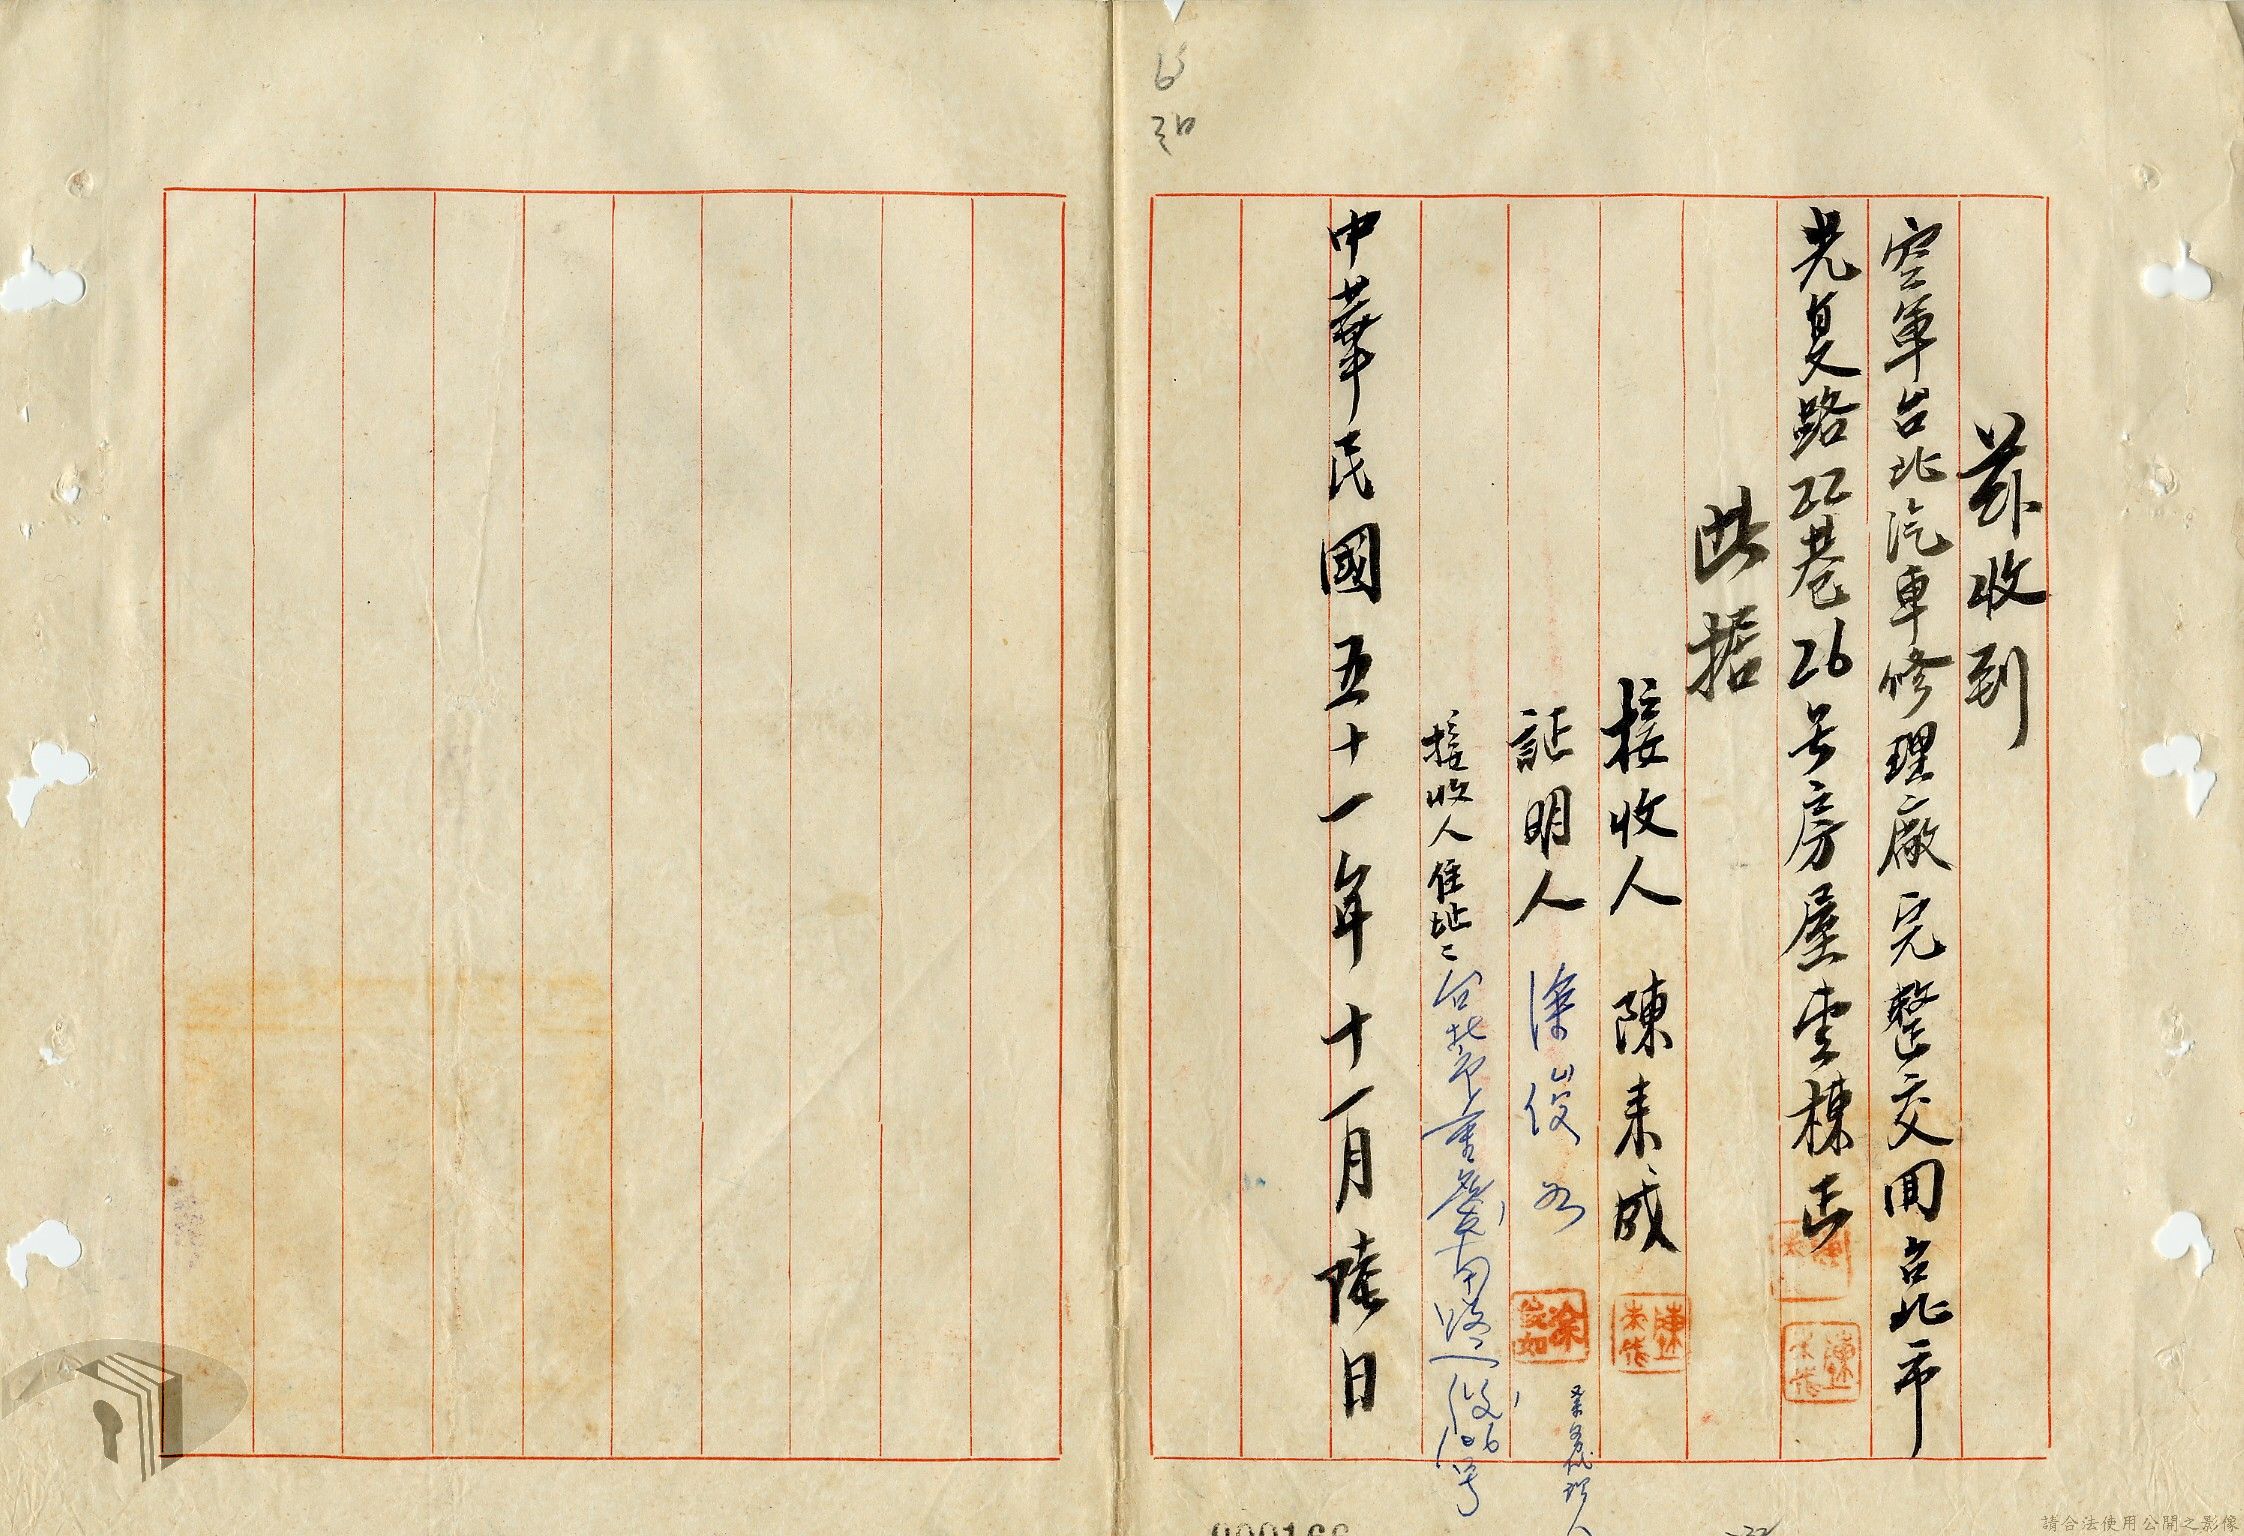 茲收到
空軍台北汽車修理廠完整交回台北市
光复路22巷26号房屋壹棟正
此据
接收人 陳来成
証明人 涂俊如
接收人住址：台北市重慶南路一段106号
中華民國五十一年十一月陸日
000166
請合法使用公開之影像